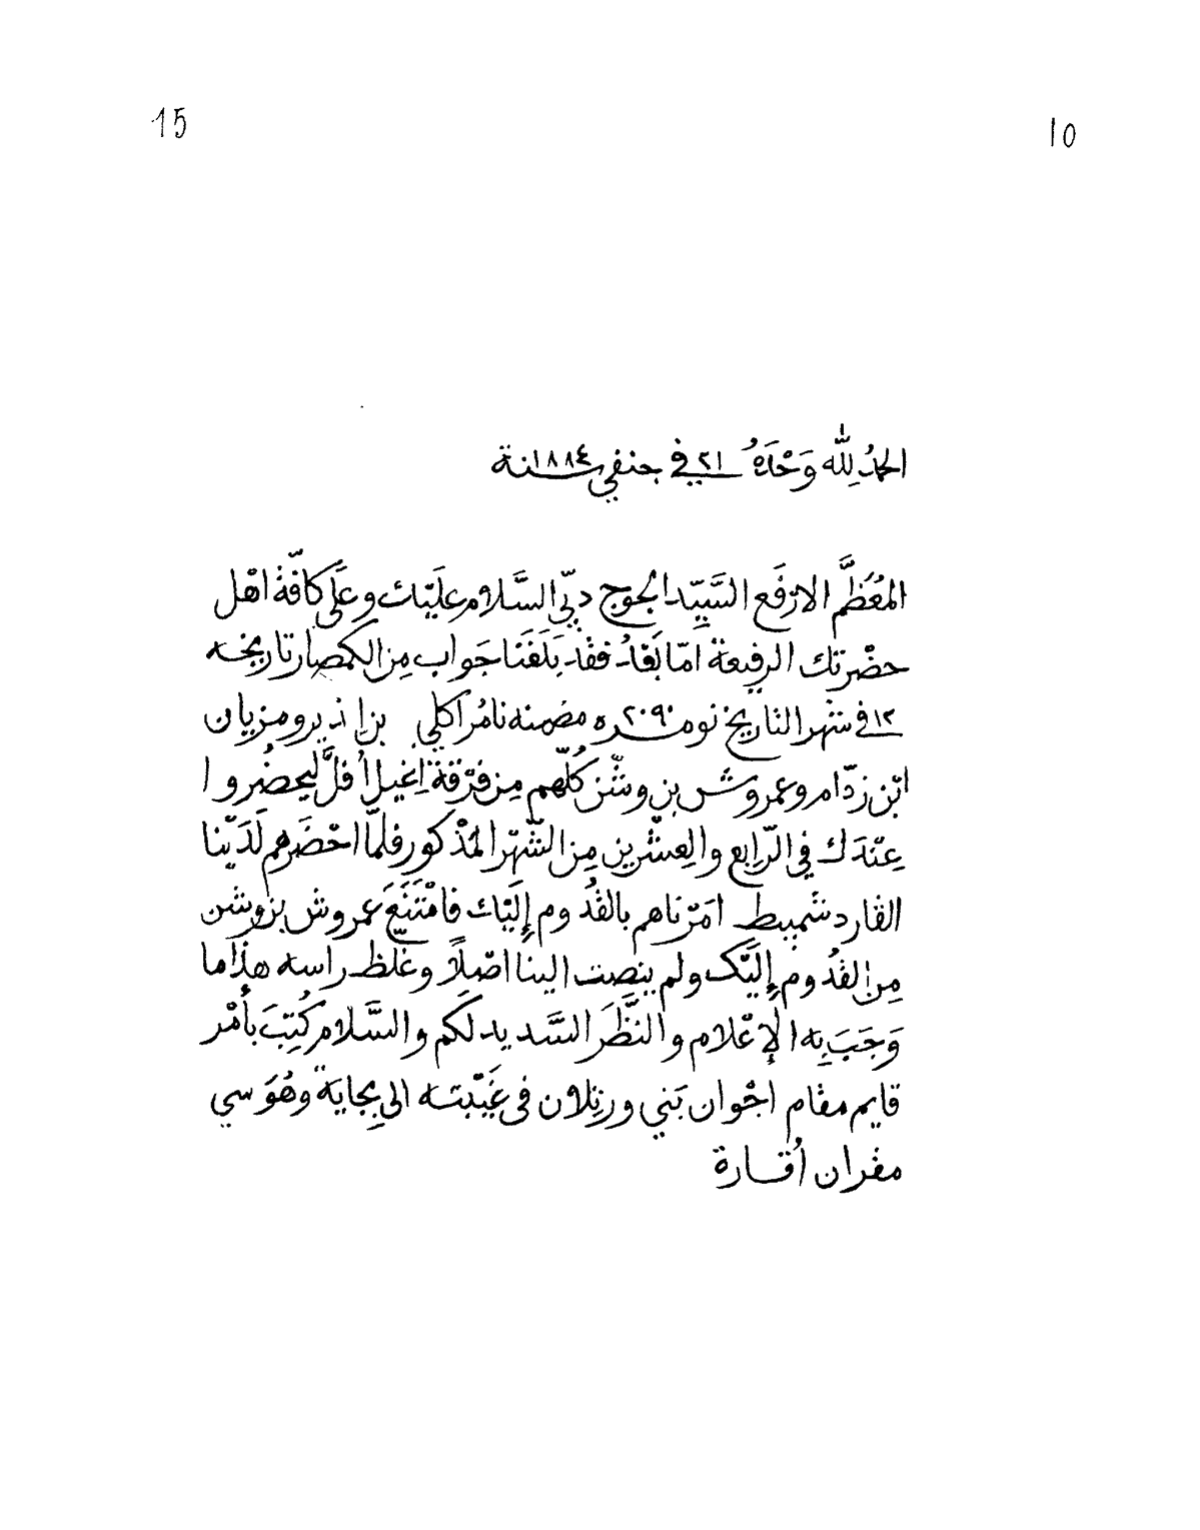 15
10
الحمدُ لِلّه وَحْدَهُ ٢١ في جنفي سنة ١٨٨٤
المُعَظَّم الارْفَع السَّيِّد الجوج دبّي السَّلام عليْك وعَلَى كافّة اهْل
حضْرتك الرفيعة امّا بَعْد فقدْ بَلَغَنا جَواب مِن الكمصار تاريخه
١٢ في شهر التاريخ نومره ٢٠٩٠ مضمنه نامُر اكلي بن اذير ومزيان
ابْن زدّام وعمروش بن وشّن كُلّهم مِن فرْقة اِغيل اُفلَّ ليحضُروا
عِنْدك في الرّابع والعِشْرين مِن الشّهْر المذْكور فلمّا احْضَرهم لَدَيْنا
القارد شمبيط امَرْناهم بالقُدوم إِلَيْك فامْتَنَعَ عمروش بن وشن
مِن القُدوم إِلَيْك ولم ينصِت الينا اصْلًا وغلظ راسه هذا ما
وَجَبَ بِه الإعْلام والنَّظَر السَّديد لكم والسَّلام كُتِبَ بأمْر
قايم مقام اجْوان بَني ورتلان في غَيْبته الى بِجاية وهُوَ سي
مقران اُقارة